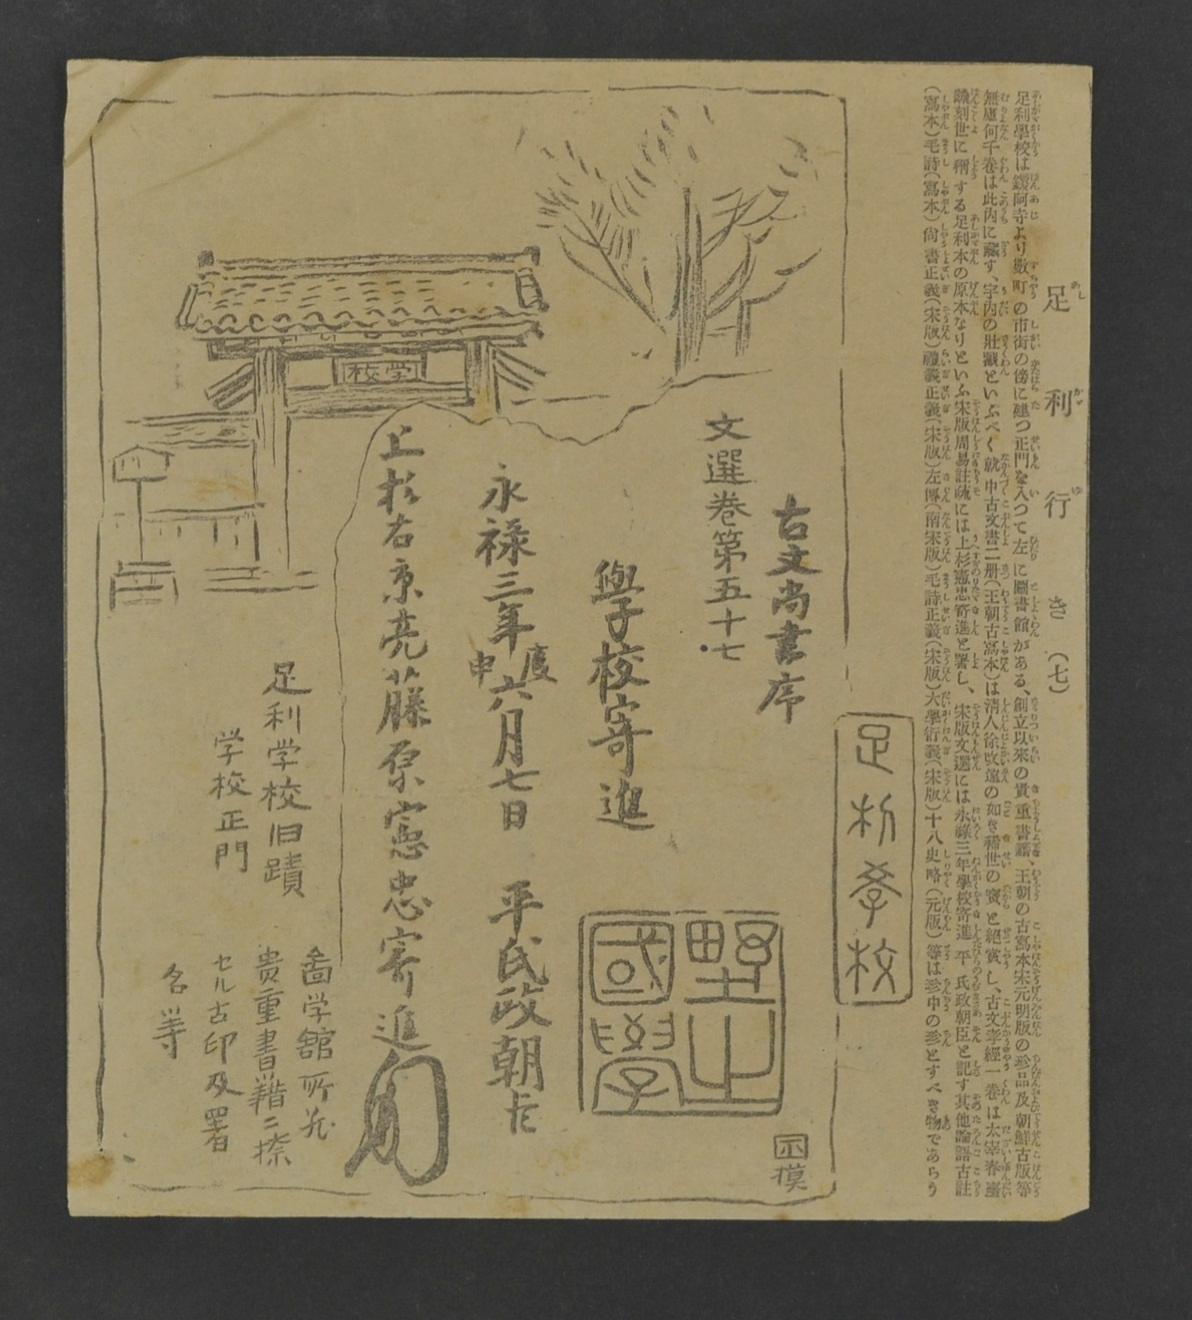 足利行き(七)
足利學校は鑁阿寺より數町の市街の傍に建つ正門を入つて左に圖書館がある、創立以來の貴重書籍、王朝の古寫本宋元明版の珍品及朝鮮古版等
無慮何千卷は此内に藏す、宇内の壯觀といふべく就中古文書二册(王朝古寫本)は淸人徐の如き稀世の寳と絕賞し、古文孝經一卷は太宰春臺
飜刻世に稱する足利本の原本なりといふ宋版周易註疏には上杉憲忠寄進と署し、宋版文選には永祿三年學校寄進 平氏政朝臣と記す其他論語古註
(寫本)毛詩(寫本)尙書正義(宋版)禮義正義(宋版)左傳(南宋版)毛詩正義(宋版)大學衍義(宋版)十八史略(元版)等は珍中の珍とすべき物であらう
足利學校
古文尚書序
文選巻第五十七
學校寄進
野之國學
永祿三年庚申六月七日 平氏政朝臣
上杉右京亮藤原憲忠寄進
学校
足利学校旧蹟
学校正門
啚学館所蔵
贵重書籍ニ捺
セル古印及署
名等
模